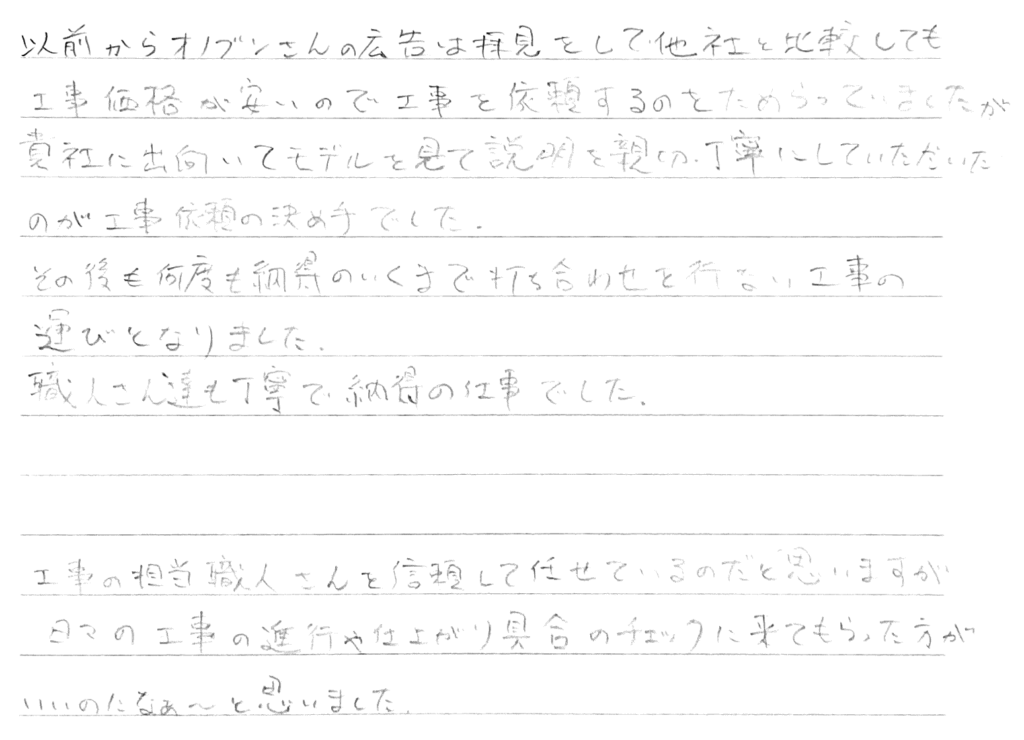 以前からオノブンさんの広告は拝見をして他社と比較しても
工事価格が安いので工事を依頼するのをためらっていましたが
貴社に出向いてモデルを見て説明を親切、丁寧にしていただいた
のが工事依頼の決め手でした。
その後も何度も納得のいくまで打ち合わせを行ない工事の
運びとなりました。
職人さん達も丁寧で納得の仕事でした。
工事の担当職人さんを信頼して任せているのだと思いますが
日々の工事の進行や仕上がり具合のチェックに来てもらった方が
いいのになぁ〜と思いました。